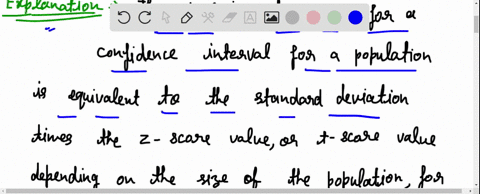 Explanation
for a
confidence interval for a population
is equivalent to the standard deviation
times the z-score value, or t-score value
depending on the size of the population, for